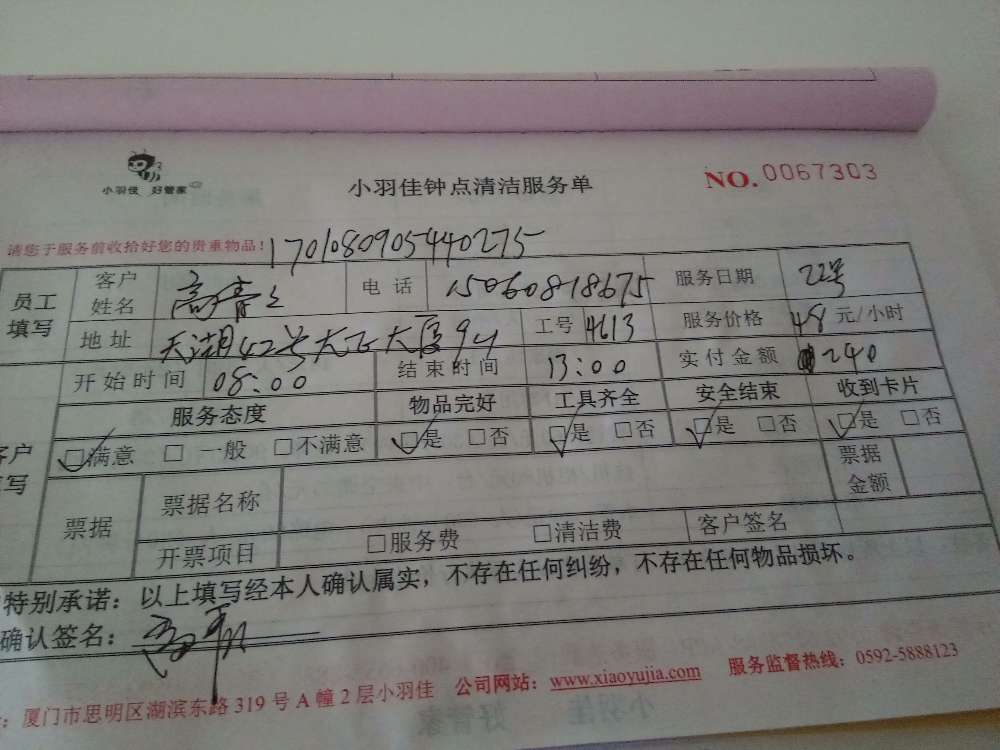 小羽佳 好管家
小羽佳钟点清洁服务单
NO.0067303
请您于服务前收拾好您的贵重物品!
170108090544027５
员工填写 客户姓名 电话 15060818675 服务日期 22号
地址 天湖42号大 大厦 工号 4613 服务价格 48 元/小时
开始时间 08:00 结束时间 13:00 实付金额 240
服务态度 物品完好 工具齐全 安全结束 收到卡片
☑满意 □一般 □不满意 ☑是 □否 ☑是 □否 ☑是 □否 ☑是 □否
票据 票据名称 票据金额
开票项目 □服务费 □清洁费 客户签名
特别承诺：以上填写经本人确认属实，不存在任何纠纷，不存在任何物品损坏。
确认签名：
厦门市思明区湖滨东路319号A幢2层小羽佳 公司网站：www.xiaoyujia.com 服务监督热线：0592-5888123